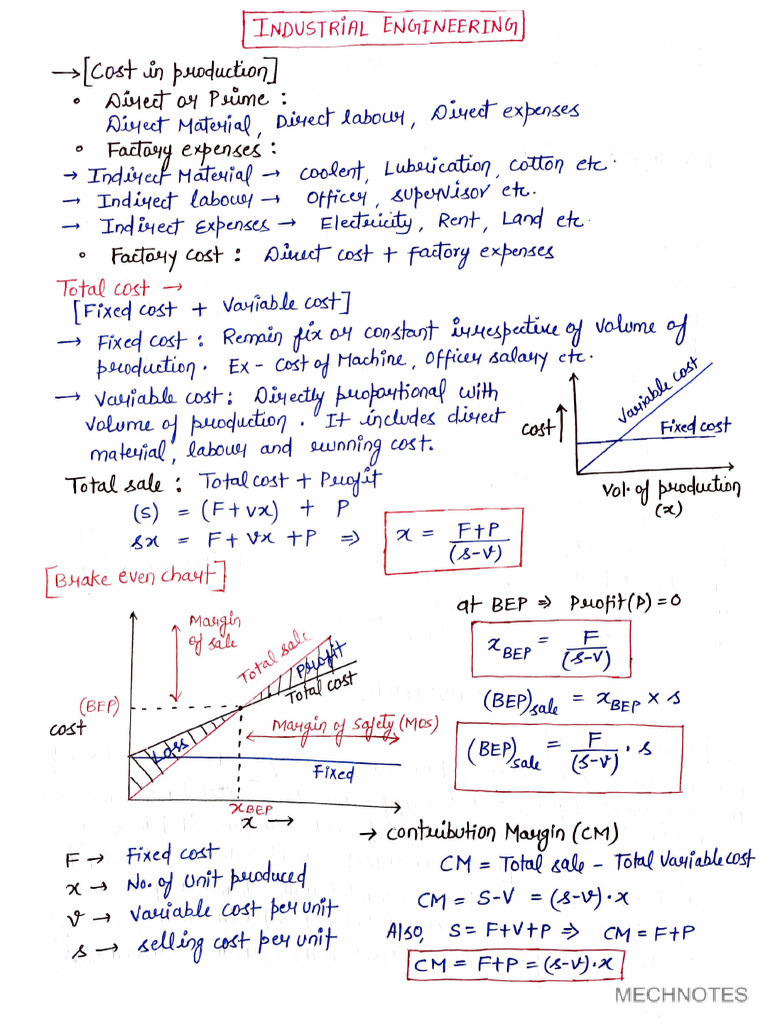 INDUSTRIAL ENGINEERING
→ [Cost in production]
• Direct or Prime :
Direct Material, Direct labour, Direct expenses
• Factory expenses :
→ Indirect Material → coolent, Lubrication, cotton etc.
→ Indirect labour → Officer, supervisor etc.
→ Indirect Expenses → Electricity, Rent, Land etc.
• Factory cost : Direct cost + factory expenses
Total cost →
[Fixed cost + Variable cost]
→ Fixed cost : Remain fix or constant irrespective of volume of
production. Ex - Cost of Machine, Officer salary etc.
→ Variable cost : Directly proportional with
volume of production. It includes direct
material, labour and running cost.
cost ↑
Variable cost
Fixed cost
Vol. of production
(x)
Total sale : Total cost + Profit
(s) = (F+vx) + P
sx = F+vx+P ⇒ x = F+P / (s-v)
[Brake even chart]
Margin
of sale
Total sale
Profit
Total cost
(BEP)
cost
Margin of safety (MOS)
Loss
Fixed
xBEP
x →
at BEP ⇒ Profit(P)=0
xBEP = F / (s-v)
(BEP)sale = xBEP × s
(BEP)sale = F / (s-v) · s
F → Fixed cost
x → No. of unit produced
v → Variable cost per unit
s → selling cost per unit
→ contribution Margin (CM)
CM = Total sale - Total variable cost
CM = S-V = (s-v)·x
Also, S = F+V+P ⇒ CM = F+P
CM = F+P = (s-v)·x
MECHNOTES